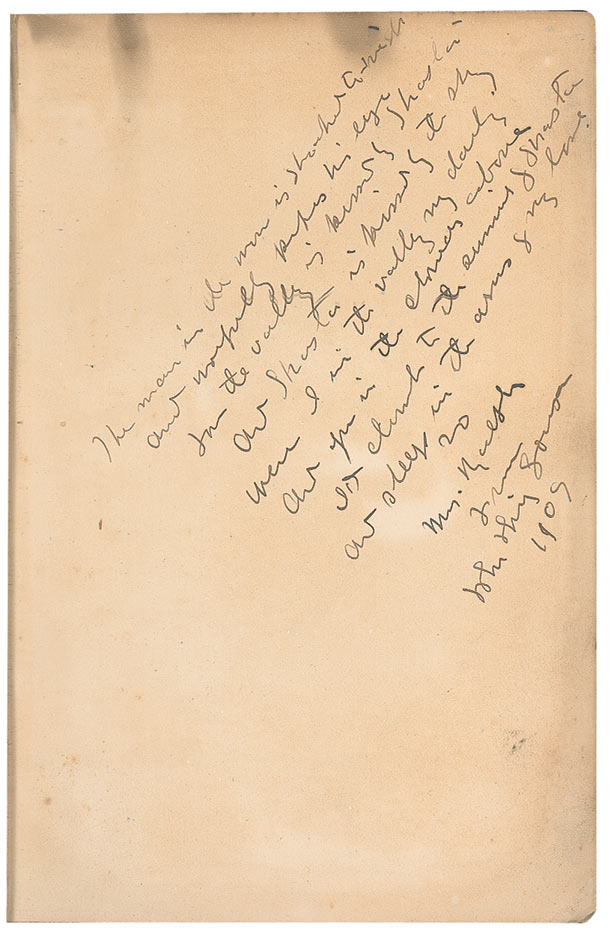 The man in the moon is shocked to-night
and woefully pipes his eye
For the valley is kissing Shasta
And Shasta is kissing the sky
Were I in the valley my darling
And you in the clouds above
I'd climb to the summit of Shasta
And sleep in the arms of my love.
Mrs.
From
1909